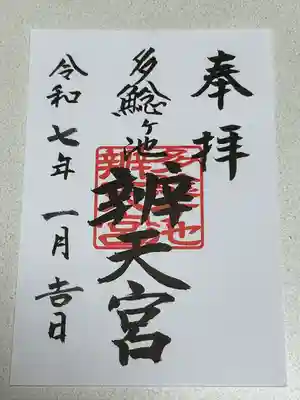 奉拝
多鯰ヶ池
辨天宮
令和七年 一月吉日